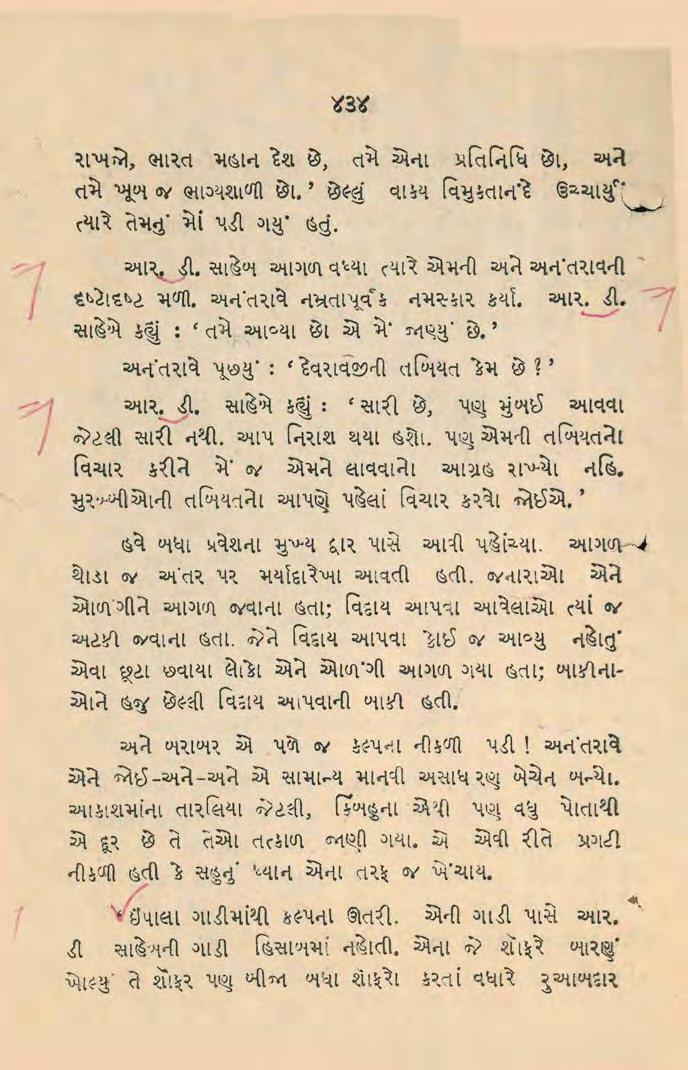 ૪૩૪
રાખજો, ભારત મહાન દેશ છે, તમે એના પ્રતિનિધિ છો, અને
તમે ખૂબ જ ભાગ્યશાળી છો.’ છેલ્લું વાકય વિમુકતાનંદે ઉચ્ચાર્યું
ત્યારે તેમનું મોં પડી ગયું હતું.
આર. ડી. સાહેબ આગળ વધ્યા ત્યારે એમની અને અનંતરાવની
દૃષ્ટોદૃષ્ટ મળી. અનંતરાવે નમ્રતાપૂર્વક નમસ્કાર કર્યા. આર. ડી.
સાહેબે કહ્યું : ‘તમે આવ્યા છો એ મેં જાણ્યું છે.’
અનંતરાવે પૂછયું : ‘દેવરાવજીની તબિયત કેમ છે ?’
આર. ડી. સાહેબે કહ્યું : ‘સારી છે, પણ મુંબઈ આવવા
જેટલી સારી નથી. આપ નિરાશ થયા હશો. પણ એમની તબિયતનો
વિચાર કરીને મેં જ એમને લાવવાનો આગ્રહ રાખ્યો નહિ.
મુરબ્બીઓની તબિયતનો આપણે પહેલાં વિચાર કરવો જોઈએ.’
હવે બધા પ્રવેશના મુખ્ય દ્વાર પાસે આવી પહોંચ્યા. આગળ
થોડા જ અંતર પર મર્યાદારેખા આવતી હતી. જનારાઓ એને
ઓળંગીને આગળ જવાના હતા; વિદાય આપવા આવેલાઓ ત્યાં જ
અટકી જવાના હતા. જેને વિદાય આપવા કોઈ જ આવ્યુ નહોતું
એવા છૂટા છવાયા લોકો એને ઓળંગી આગળ ગયા હતા; બાકીના-
ઓને હજુ છેલ્લી વિદાય આપવાની બાકી હતી.
અને બરાબર એ પળે જ કલ્પના નીકળી પડી ! અનંતરાવે
એને જોઈ-અને-અને એ સામાન્ય માનવી અસાધરણ બેચેન બન્યો.
આકાશમાંના તારલિયા જેટલી, કિંબહુના એથી પણ વધુ પોતાથી
એ દૂર છે તે તેઓ તત્કાળ જાણી ગયા. એ એવી રીતે પ્રગટી
નીકળી હતી કે સહુનું ધ્યાન એના તરફ જ ખેંચાય.
ઈંપાલા ગાડીમાંથી કલ્પના ઊતરી. એની ગાડી પાસે આર.
ડી સાહેબની ગાડી હિસાબમાં નહોતી. એના જે શૉફરે બારણું
ખોલ્યું તે શૉફર પણ બીજા બધા શૉફરો કરતાં વધારે રુઆબદાર